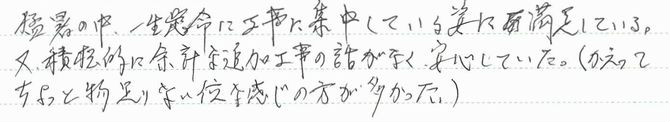 猛暑の中、一生懸命に工事に集中している姿に満足している。
又、積極的に余計な追加工事の話がなく安心していた。(かえって
ちょっと物足りない位な感じの方が多かった。)